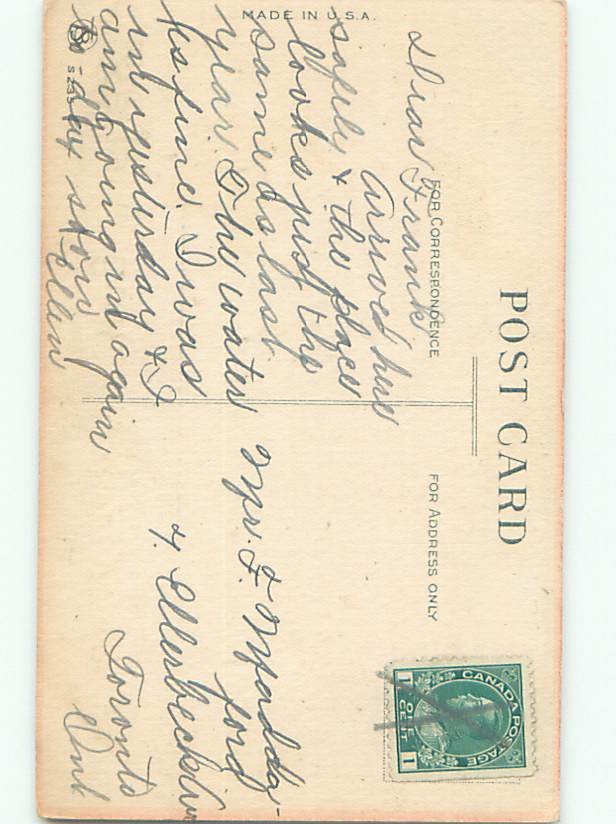 POST CARD
FOR CORRESPONDENCE
FOR ADDRESS ONLY
MADE IN U.S.A.
Dear Frank
Arrived here
safely & the place
looks just the
same as last
year. The water
is fine. I was
in yesterday & I
am going in again
to-day
Ellen
Mr. F. Madda-
ford
7. Ellerbeck
Toronto
Ont
CANADA POSTAGE
1 ONE CENT 1